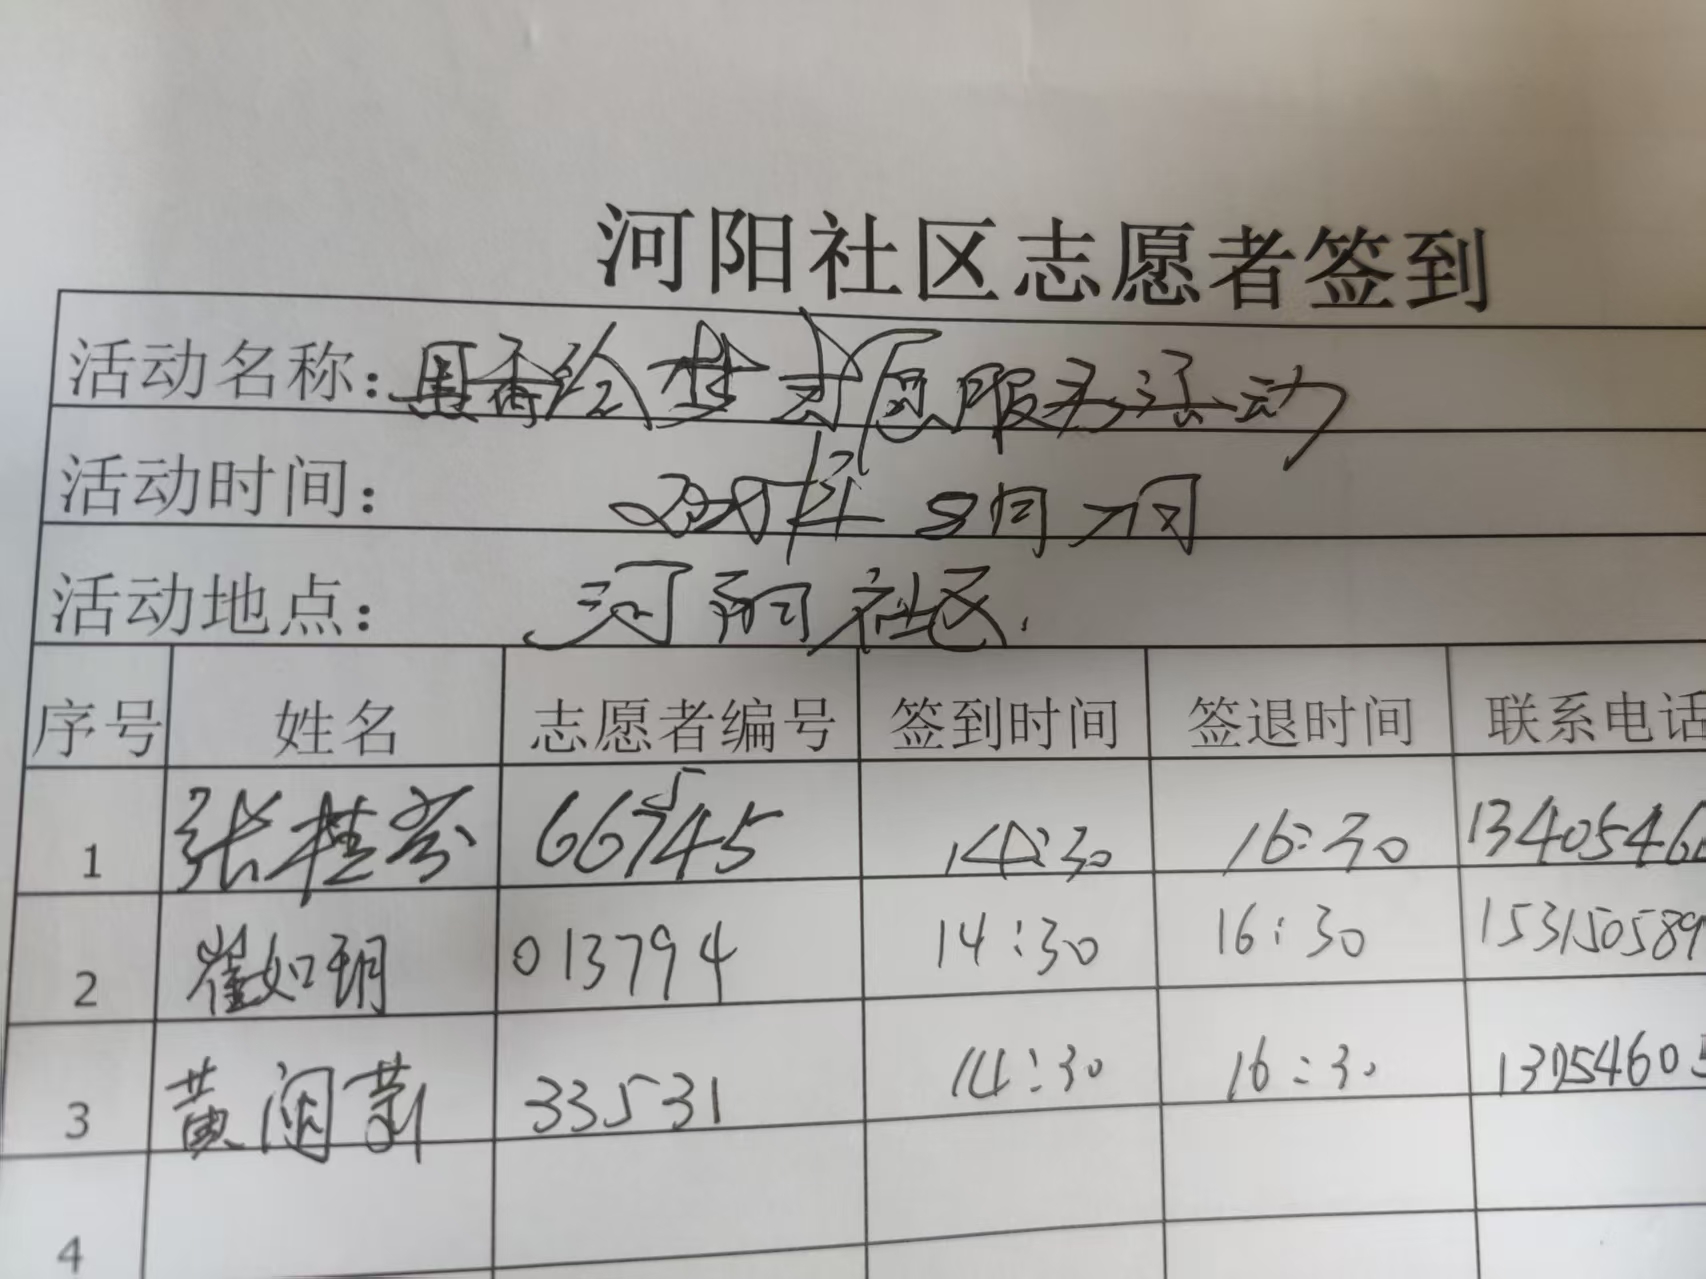 河阳社区志愿者签到
活动名称：服务活动
活动时间：2025年8月7日
活动地点：河阳社区.
序号 姓名 志愿者编号 签到时间 签退时间 联系电话
1 张桂芬 14:30 16:30 1340546
2 崔如玥 013794 14:30 16:30 153150589
3 黄闵莉 33531 14:30 16:30
4